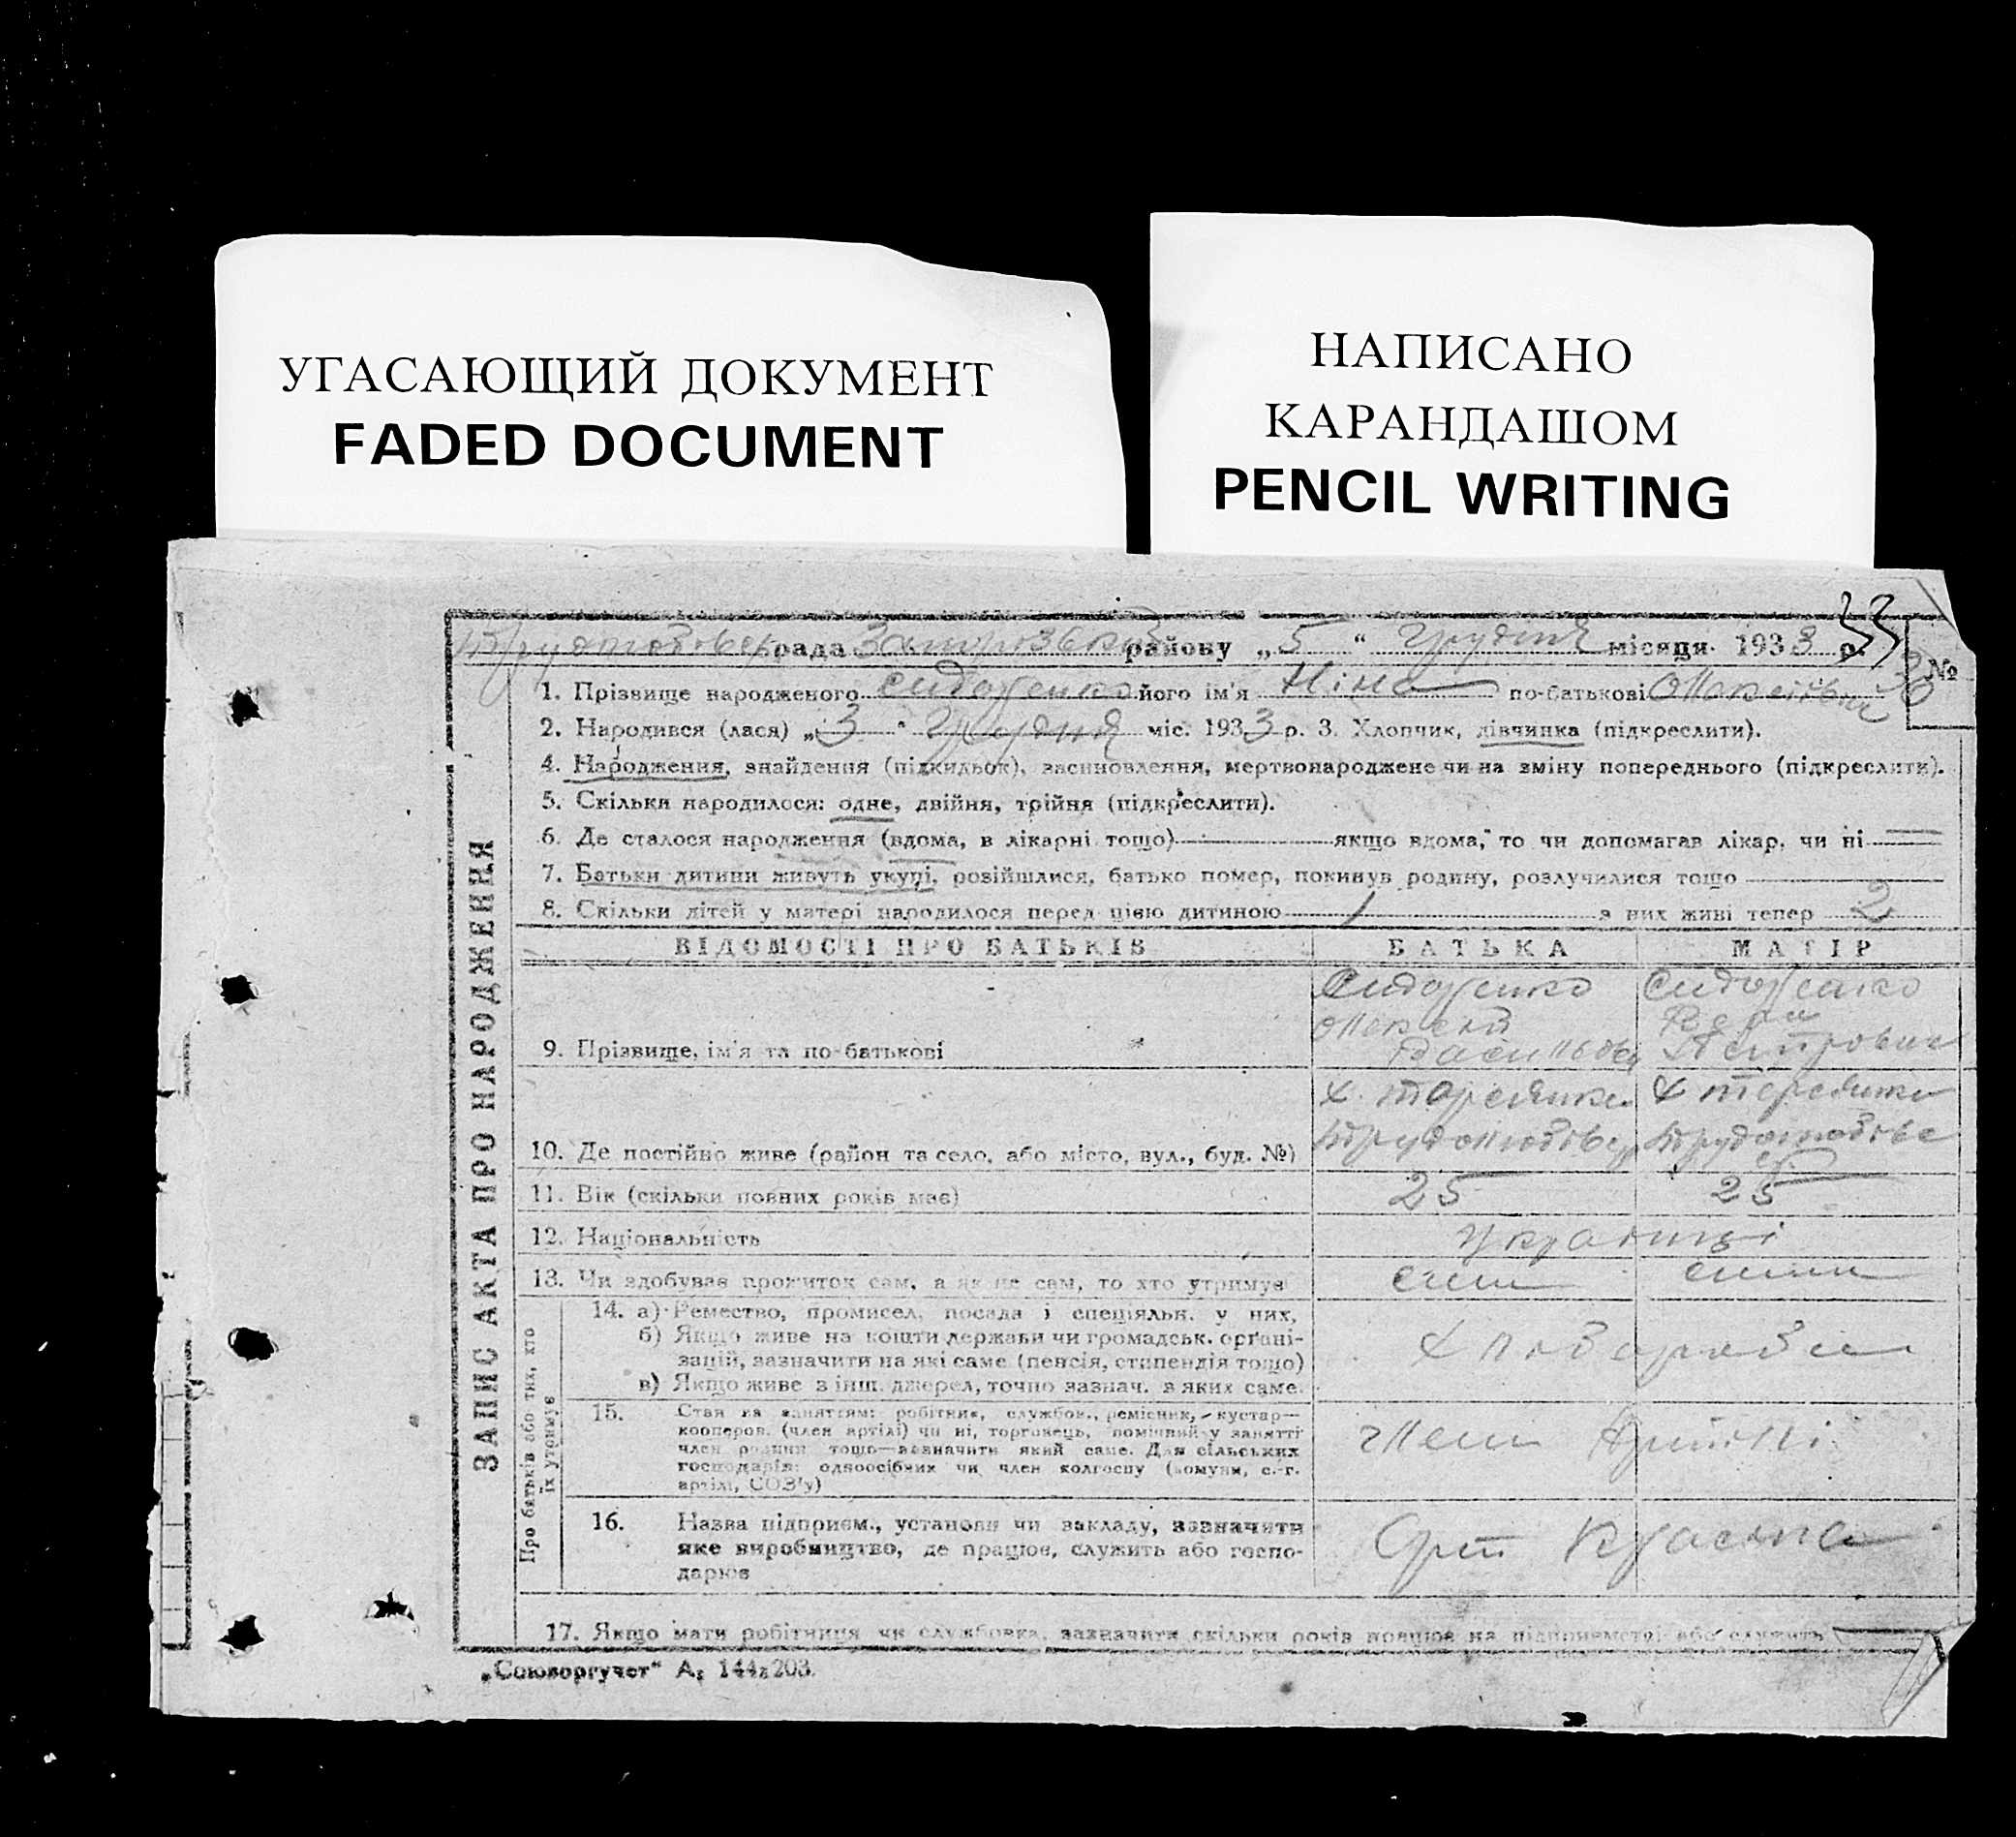 УГАСАЮЩИЙ ДОКУМЕНТ
FADED DOCUMENT
НАПИСАНО
КАРАНДАШОМ
PENCIL WRITING
рада району „5“ Грудня місяця 1933 р.
33
№
30
1. Прізвище народженого Сидоренко його ім'я Ніна по-батькові
2. Народився (лася) „3“ Грудня міс. 1933 р. 3. Хлопчик, дівчинка (підкреслити).
4. Народження, знайдення (підкидьок), засиновлення, мертвонароджене чи на зміну попереднього (підкреслити).
5. Скільки народилося: одне, двійня, трійня (підкреслити).
6. Де сталося народження (вдома, в лікарні тощо) якщо вдома, то чи допомагав лікар, чи ні
7. Батьки дитини живуть укупі, розійшлися, батько помер, покинув родину, розлучилися тощо
8. Скільки дітей у матері народилося перед цією дитиною 1 з них живі тепер 2
ВІДОМОСТІ ПРО БАТЬКІВ БАТЬКА МАТІР
Сидоренко Сидоренко
Вера
9. Прізвище, ім'я та по-батькові Петровна
10. Де постійно живе (район та село, або місто, вул., буд. №)
11. Вік (скільки повних років має) 25 25
12. Національність Українці
13. Чи здобував прожиток сам, а як не сам, то хто утримує сам сама
14. а) Ремество, промисел, посада і спеціяльн. у них,
б) Якщо живе на кошти держави чи громадськ. органі-
зацій, зазначити на які саме (пенсія, стипендія тощо)
в) Якщо живе з інш. джерел, точно зазнач. з яких саме.
Хлібороби
15. Стан за заняттям: робітник, службов., ремісник, кустар—
кооперов. (член артілі) чи ні, торговець, помічний у занятті
член родини тощо—зазначити який саме. Для сільських
господарів: одноосібник чи член колгоспу (комуни, с.-г.
артілі, СОЗ'у)
Члени Артілі
16. Назва підприєм., установи чи закладу, зазначити
яке виробництво, де працює, служить або госпо-
дарює
17. Якщо мати робітниця чи службовка, зазначити скільки років працює на підприємстві або служить
ЗАПИС АКТА ПРО НАРОДЖЕННЯ
Про батьків або тих, хто
їх утримує
„Союзоргучет“ А, 144 203.